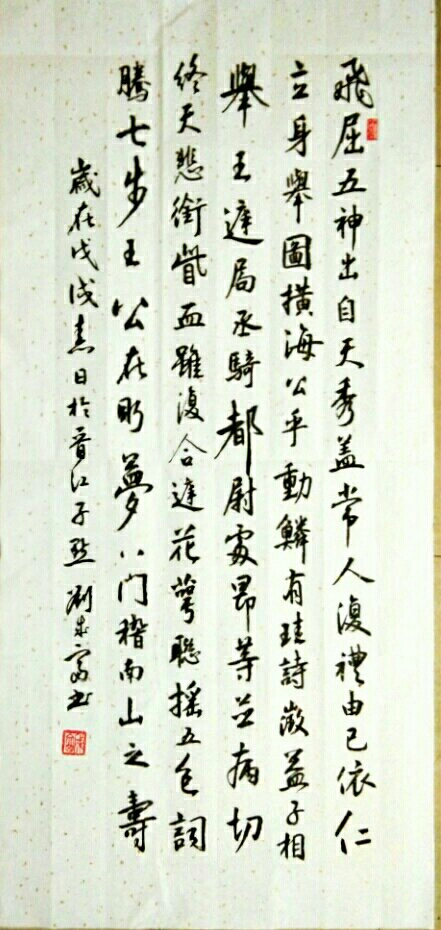 飛屈五神出自天秀盖常人復禮由己依仁
立身舉圖橫海公乎動鱗有珪詩激益子相
舉王遽局丞騎都尉處昂等並病切
終天悲銜眦血雖復合遽花萼聡摇五色詞
騰七步王公在昉夢八門稽南山之壽
歲在戊戌 日於晋江子 劉 富书